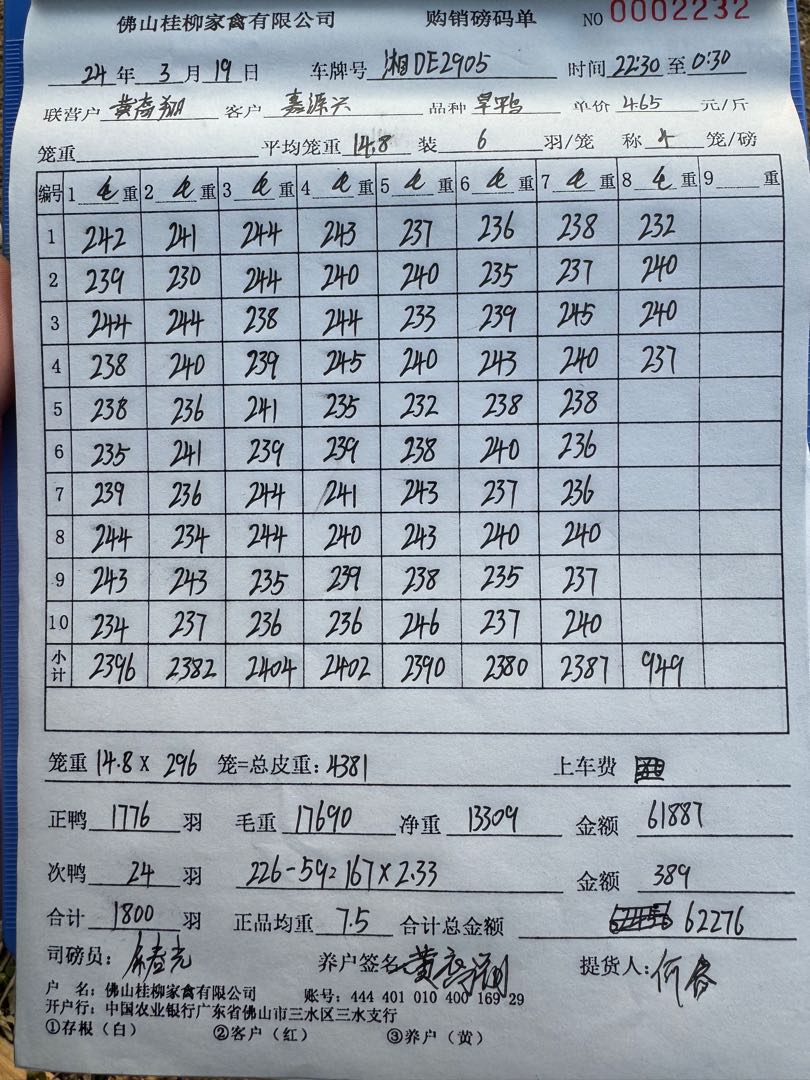 佛山桂柳家禽有限公司 购销磅码单 NO 0002232
24 年 3 月 19 日 车牌号 湘DE2905 时间 22:30 至 0:30
联营户 黄奇翔 客户 嘉源兴 品种 旱鸭 单价 4.65 元/斤
笼重 平均笼重 14.8 装 6 羽/笼 称 4 笼/磅
编号 1 毛 重 2 毛 重 3 毛 重 4 毛 重 5 毛 重 6 毛 重 7 毛 重 8 毛 重 9 重
1 242 241 244 243 237 236 238 232
2 239 230 244 240 240 235 237 240
3 244 244 238 244 233 239 245 240
4 238 240 239 245 240 243 240 237
5 238 236 241 235 232 238 238
6 235 241 239 239 238 240 236
7 239 236 244 241 243 237 236
8 244 234 244 240 243 240 240
9 243 243 235 239 238 235 237
10 234 237 236 236 246 237 240
小计 2396 2382 2404 2402 2390 2380 2387 949
笼重 14.8 X 296 笼=总皮重: 4381 上车费
正鸭 1776 羽 毛重 17690 净重 13309 金额 61887
次鸭 24 羽 226-59=167×2.33 金额 389
合计 1800 羽 正品均重 7.5 合计总金额 62276
司磅员: 养户签名 提货人:
户 名: 佛山桂柳家禽有限公司 账号: 444 401 010 400 169 29
开户行: 中国农业银行广东省佛山市三水区三水支行
①存根（白） ②客户（红） ③养户（黄）